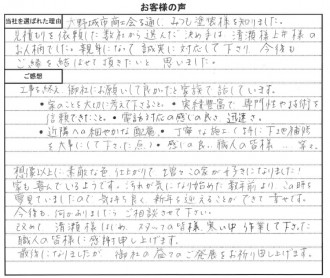 お客様の声
当社を選ばれた理由
大野城市商工会を通し、みつし塗装様を知りました。
見積りを依頼した数社から選んだ決め手は、清瀬様と井様の
お人柄でした。親身になって誠実に対応して下さり、今後も
ご縁を結ばせて頂きたいと思いました。
ご感想
工事を終え、御社にお願いして良かったと家族で話しています。
・家のことを大切に考えて下さること。・実績豊富で専門性や技術を
信頼できたこと。・電話対応の感じの良さ、迅速さ。
・近隣への細やかな配慮。・丁寧な施工(特に下地補修
を大事にして下さった点)・感じの良い職人の皆様...等々。
想像以上に素敵な色、仕上がりで、増々この家が好きになりました!
家も喜んでいるようです。汚れが気になり始めた数年前より、この時を
夢見ていましたので、気持ち良く新年を迎えることができて幸せです。
今後も何かありましたらご相談させて下さい。
改めて、清瀬様はじめ、スタッフの皆様、寒い中作業して下さった
職人の皆様に感謝申し上げます。
最後になりましたが、御社の益々のご発展をお祈り申し上げます。